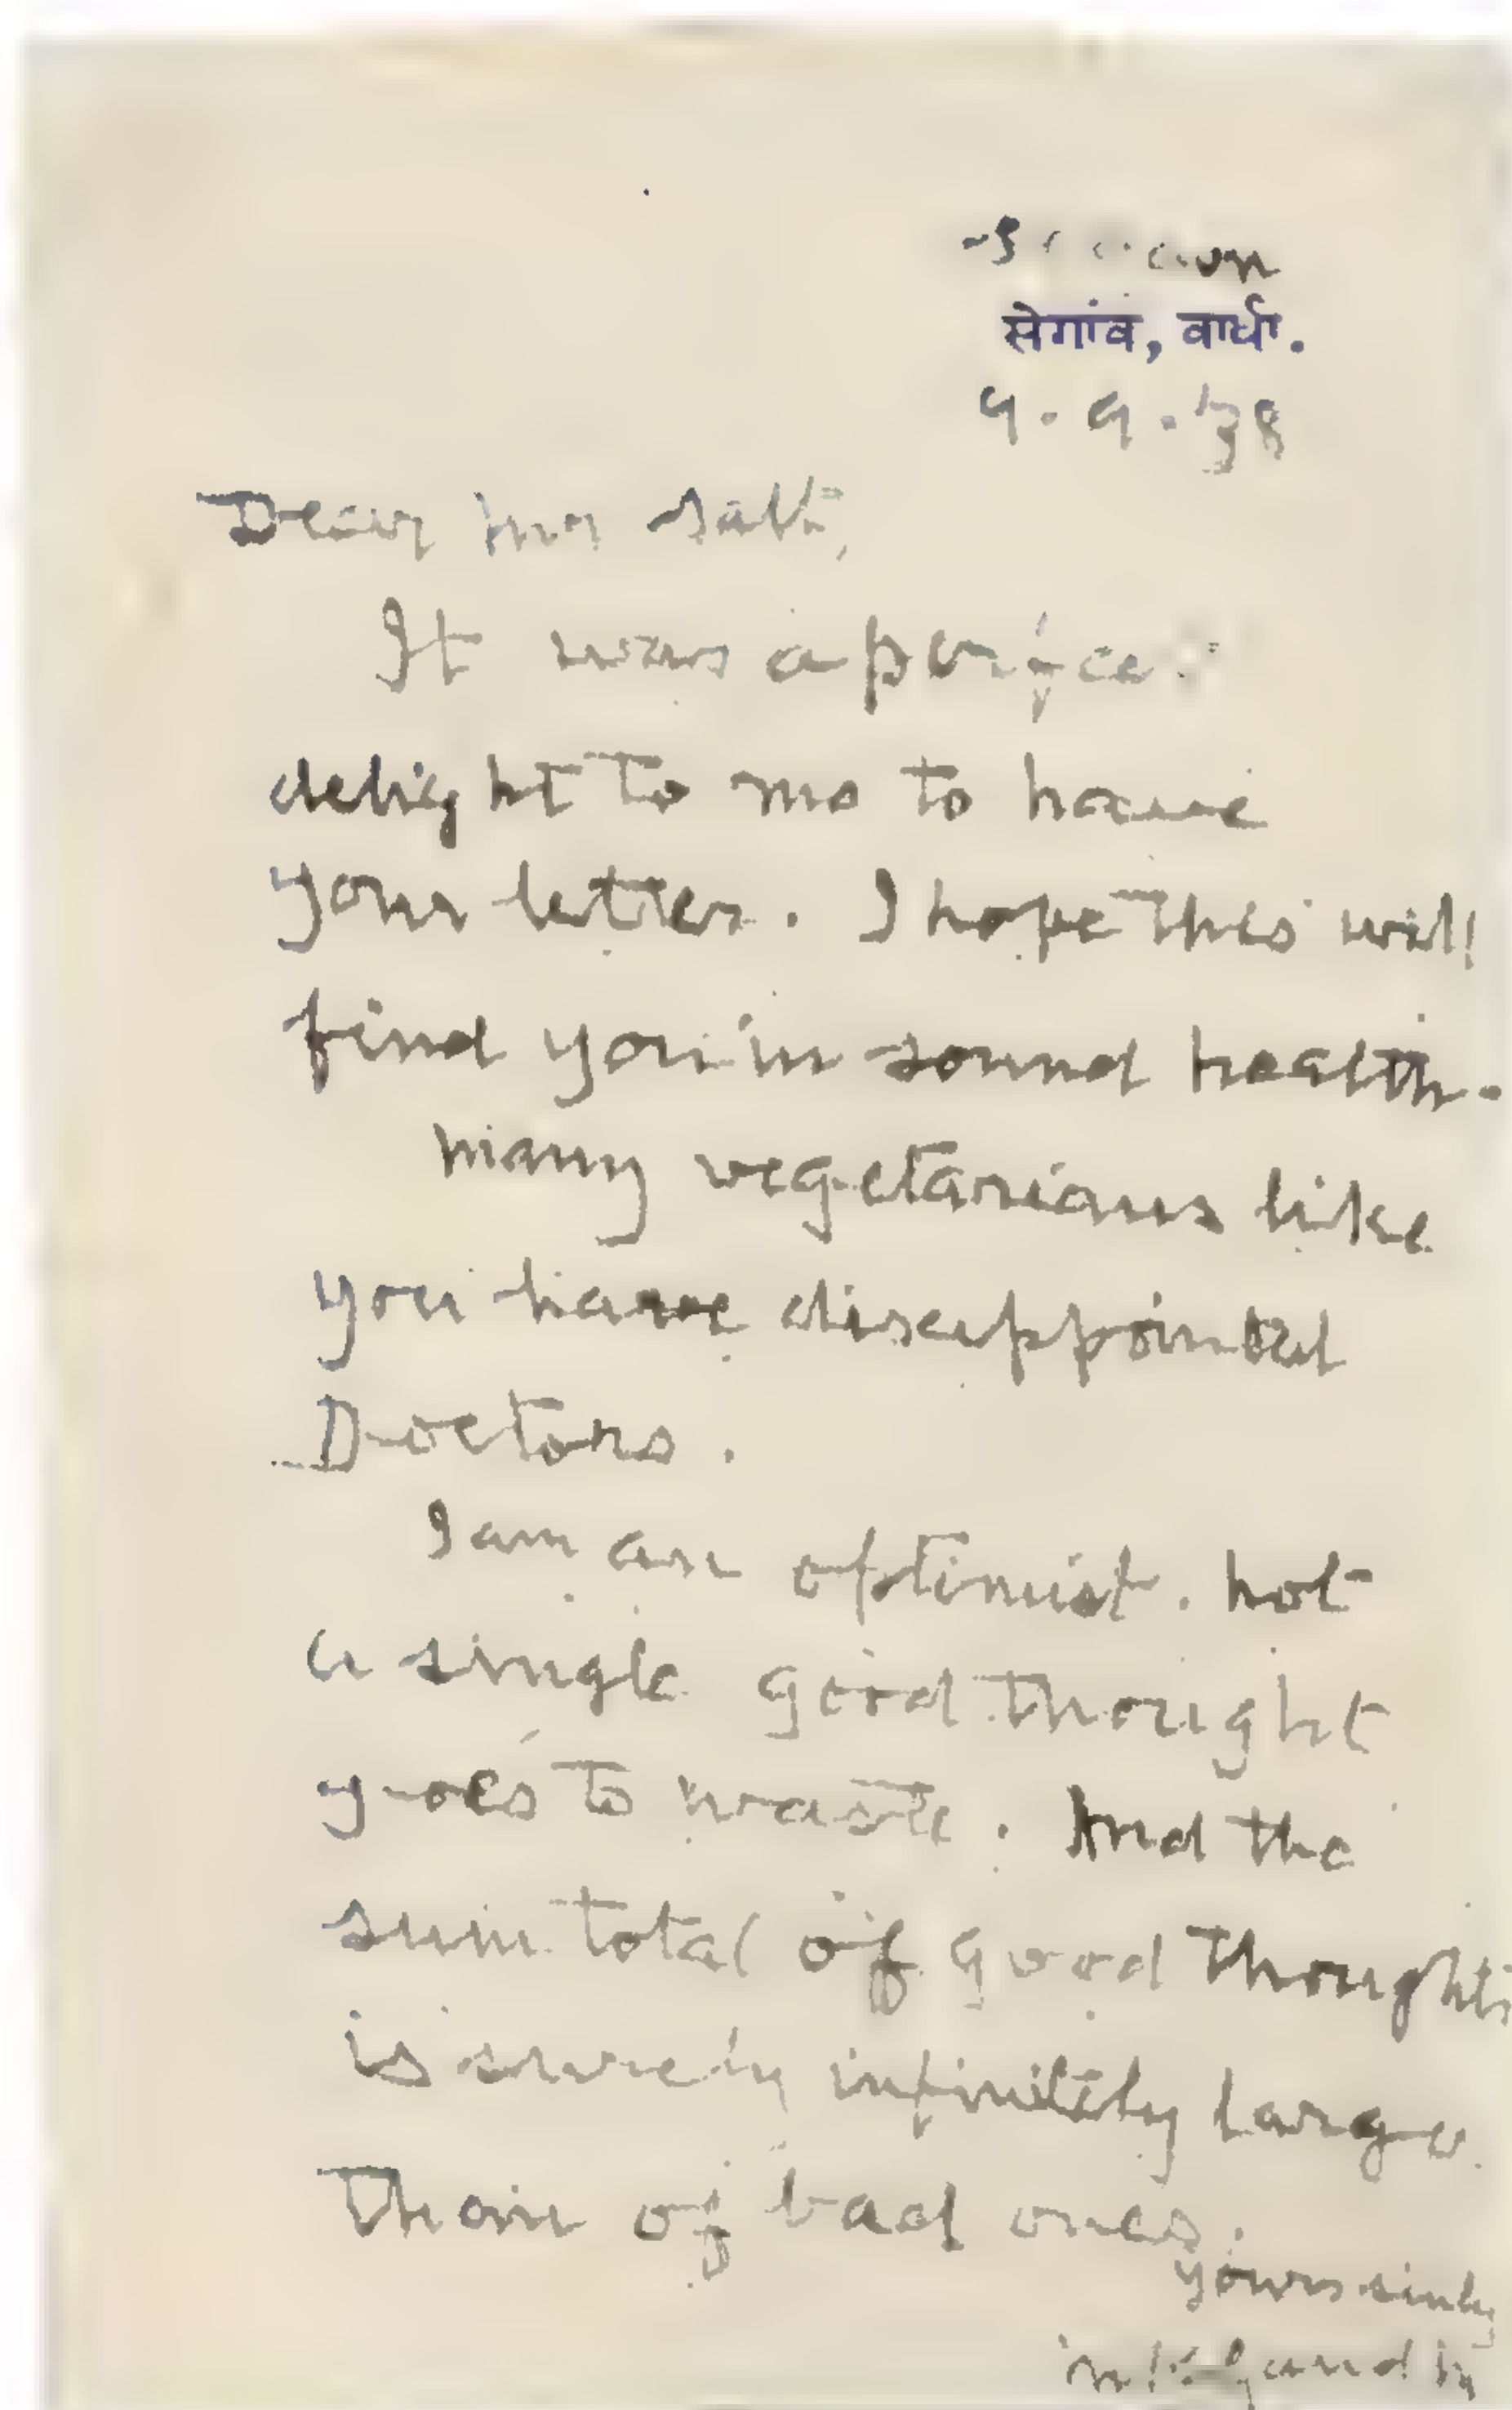 सेगांव, वार्धा.
9.9.'38
Dear Mr Salt,
It was a perfect
delight to me to have
your letter. I hope this will
find you in sound health.
Many vegetarians like
you have disappointed
Doctors.
I am an optimist. Not
a single good thought
goes to waste. And the
sum total of good thoughts
is surely infinitely large
than of bad ones.
Yours sinly
MKGandhi